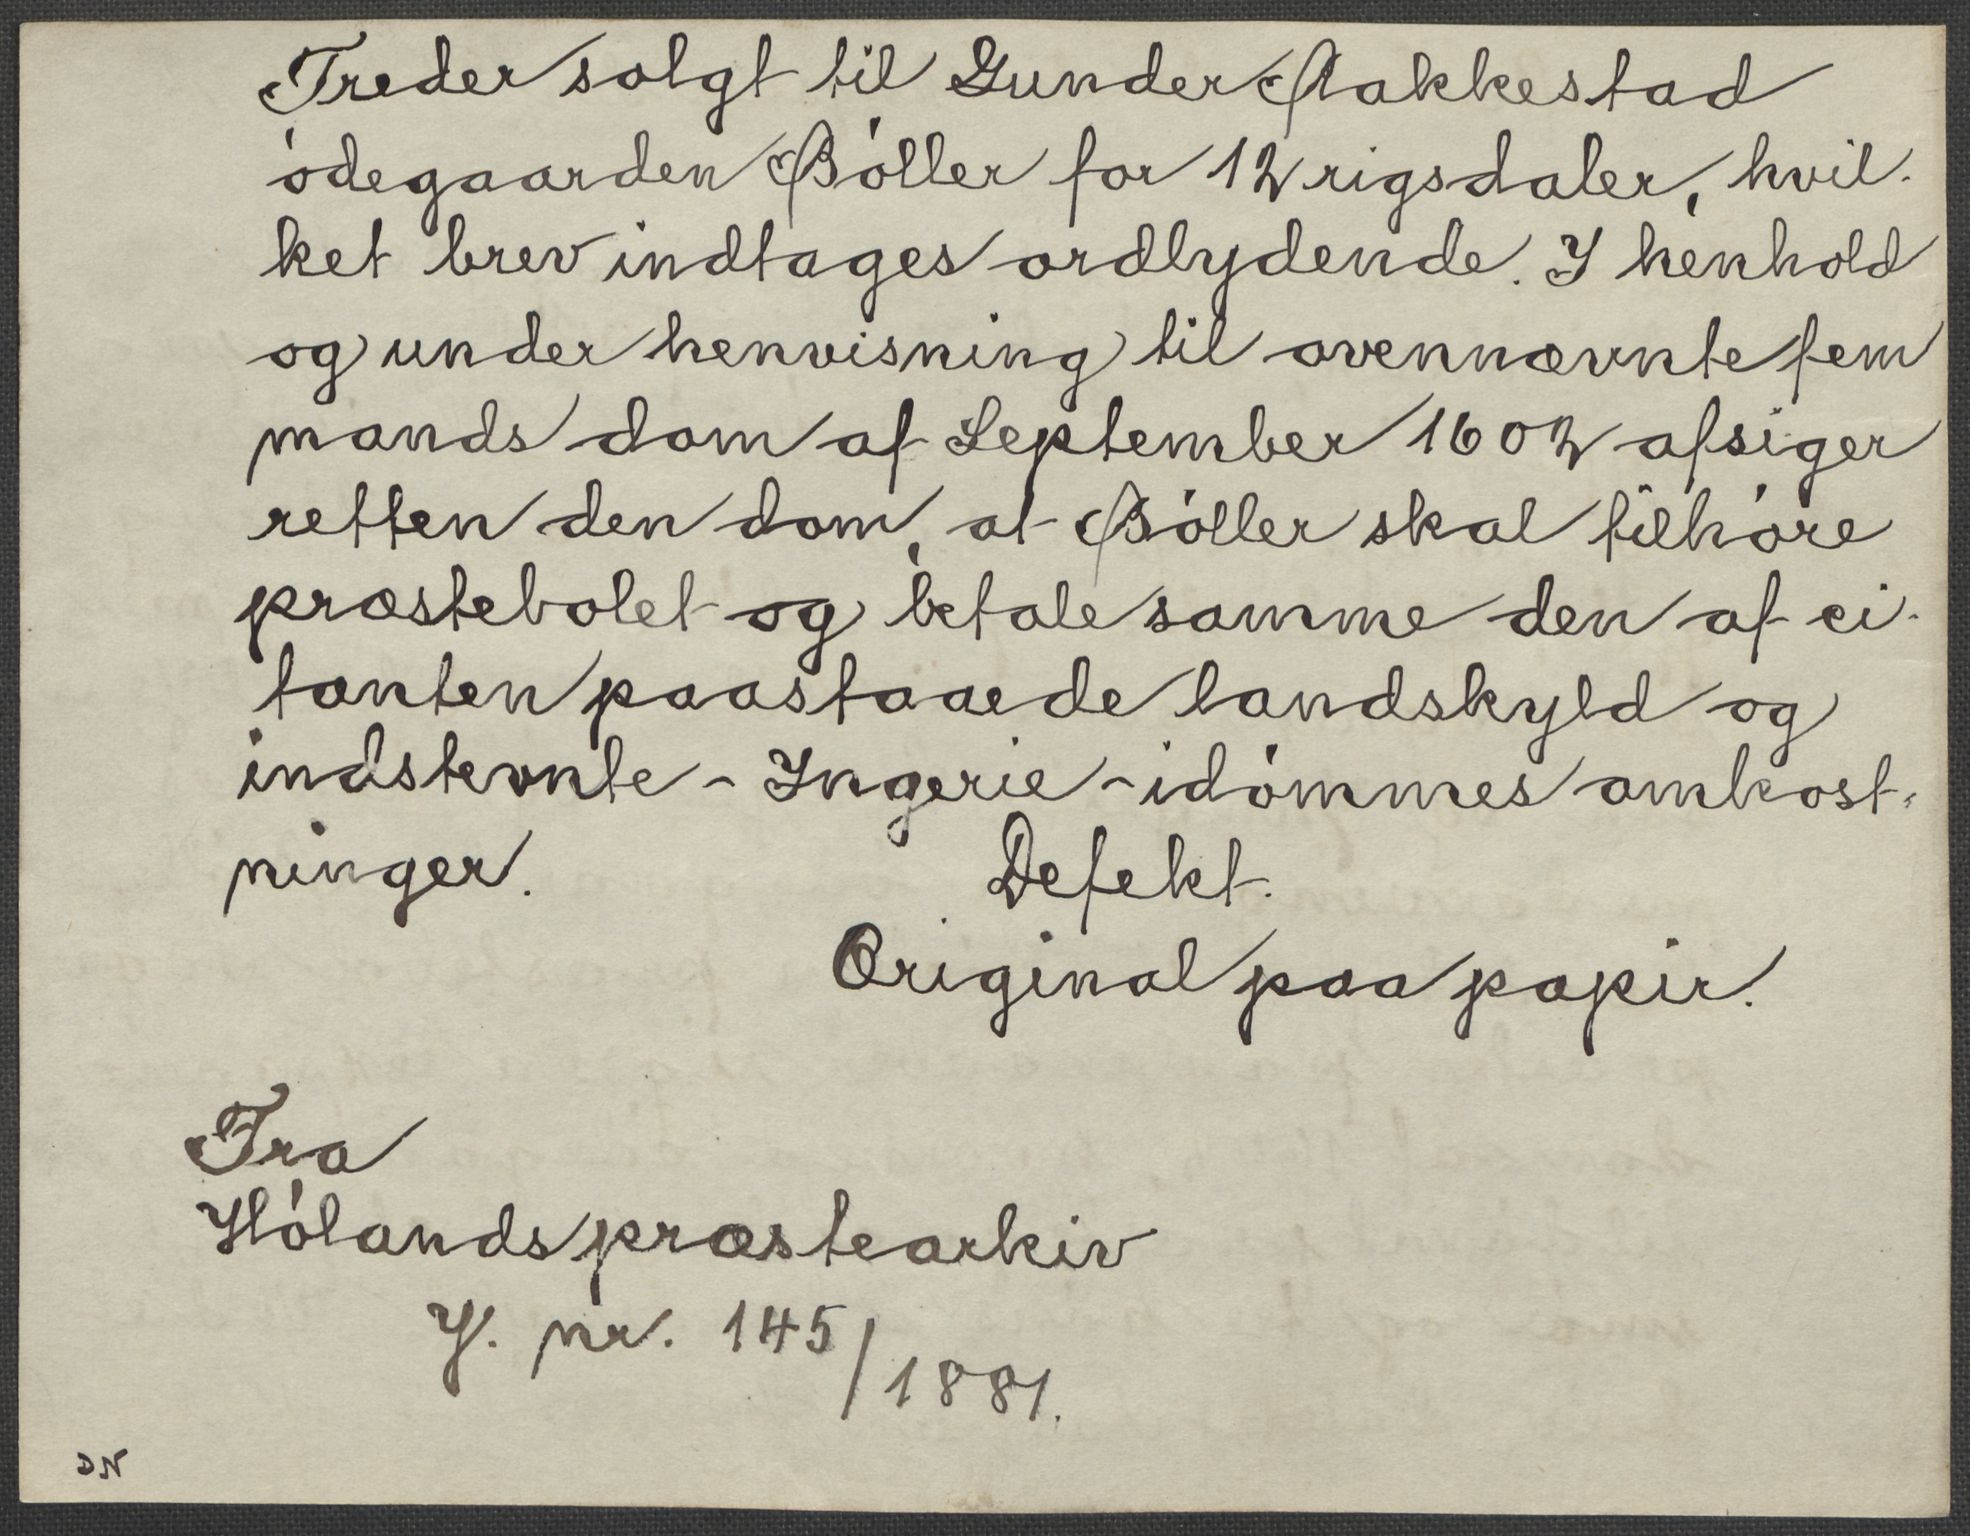 Treder solgt til Gunder Aakkestad
ódegaarden Bóller for 12 rigsdaler, hvil-
ket brev indtages ordlydende. I henhold
og under henvisning til ovennævnte fem
mands dom af September 1602 afsiger
retten den dom, at Bóller skal tilhóre
præstebolet og betale samme den af ci-
tanten paastaaede landskyld og
indstevnte - Ingerie - idómmes omkost-
ninger. Defekt.
Original paa papir.
Fra
Hólands præstearkiv
J. nr. 145/1881.
DN